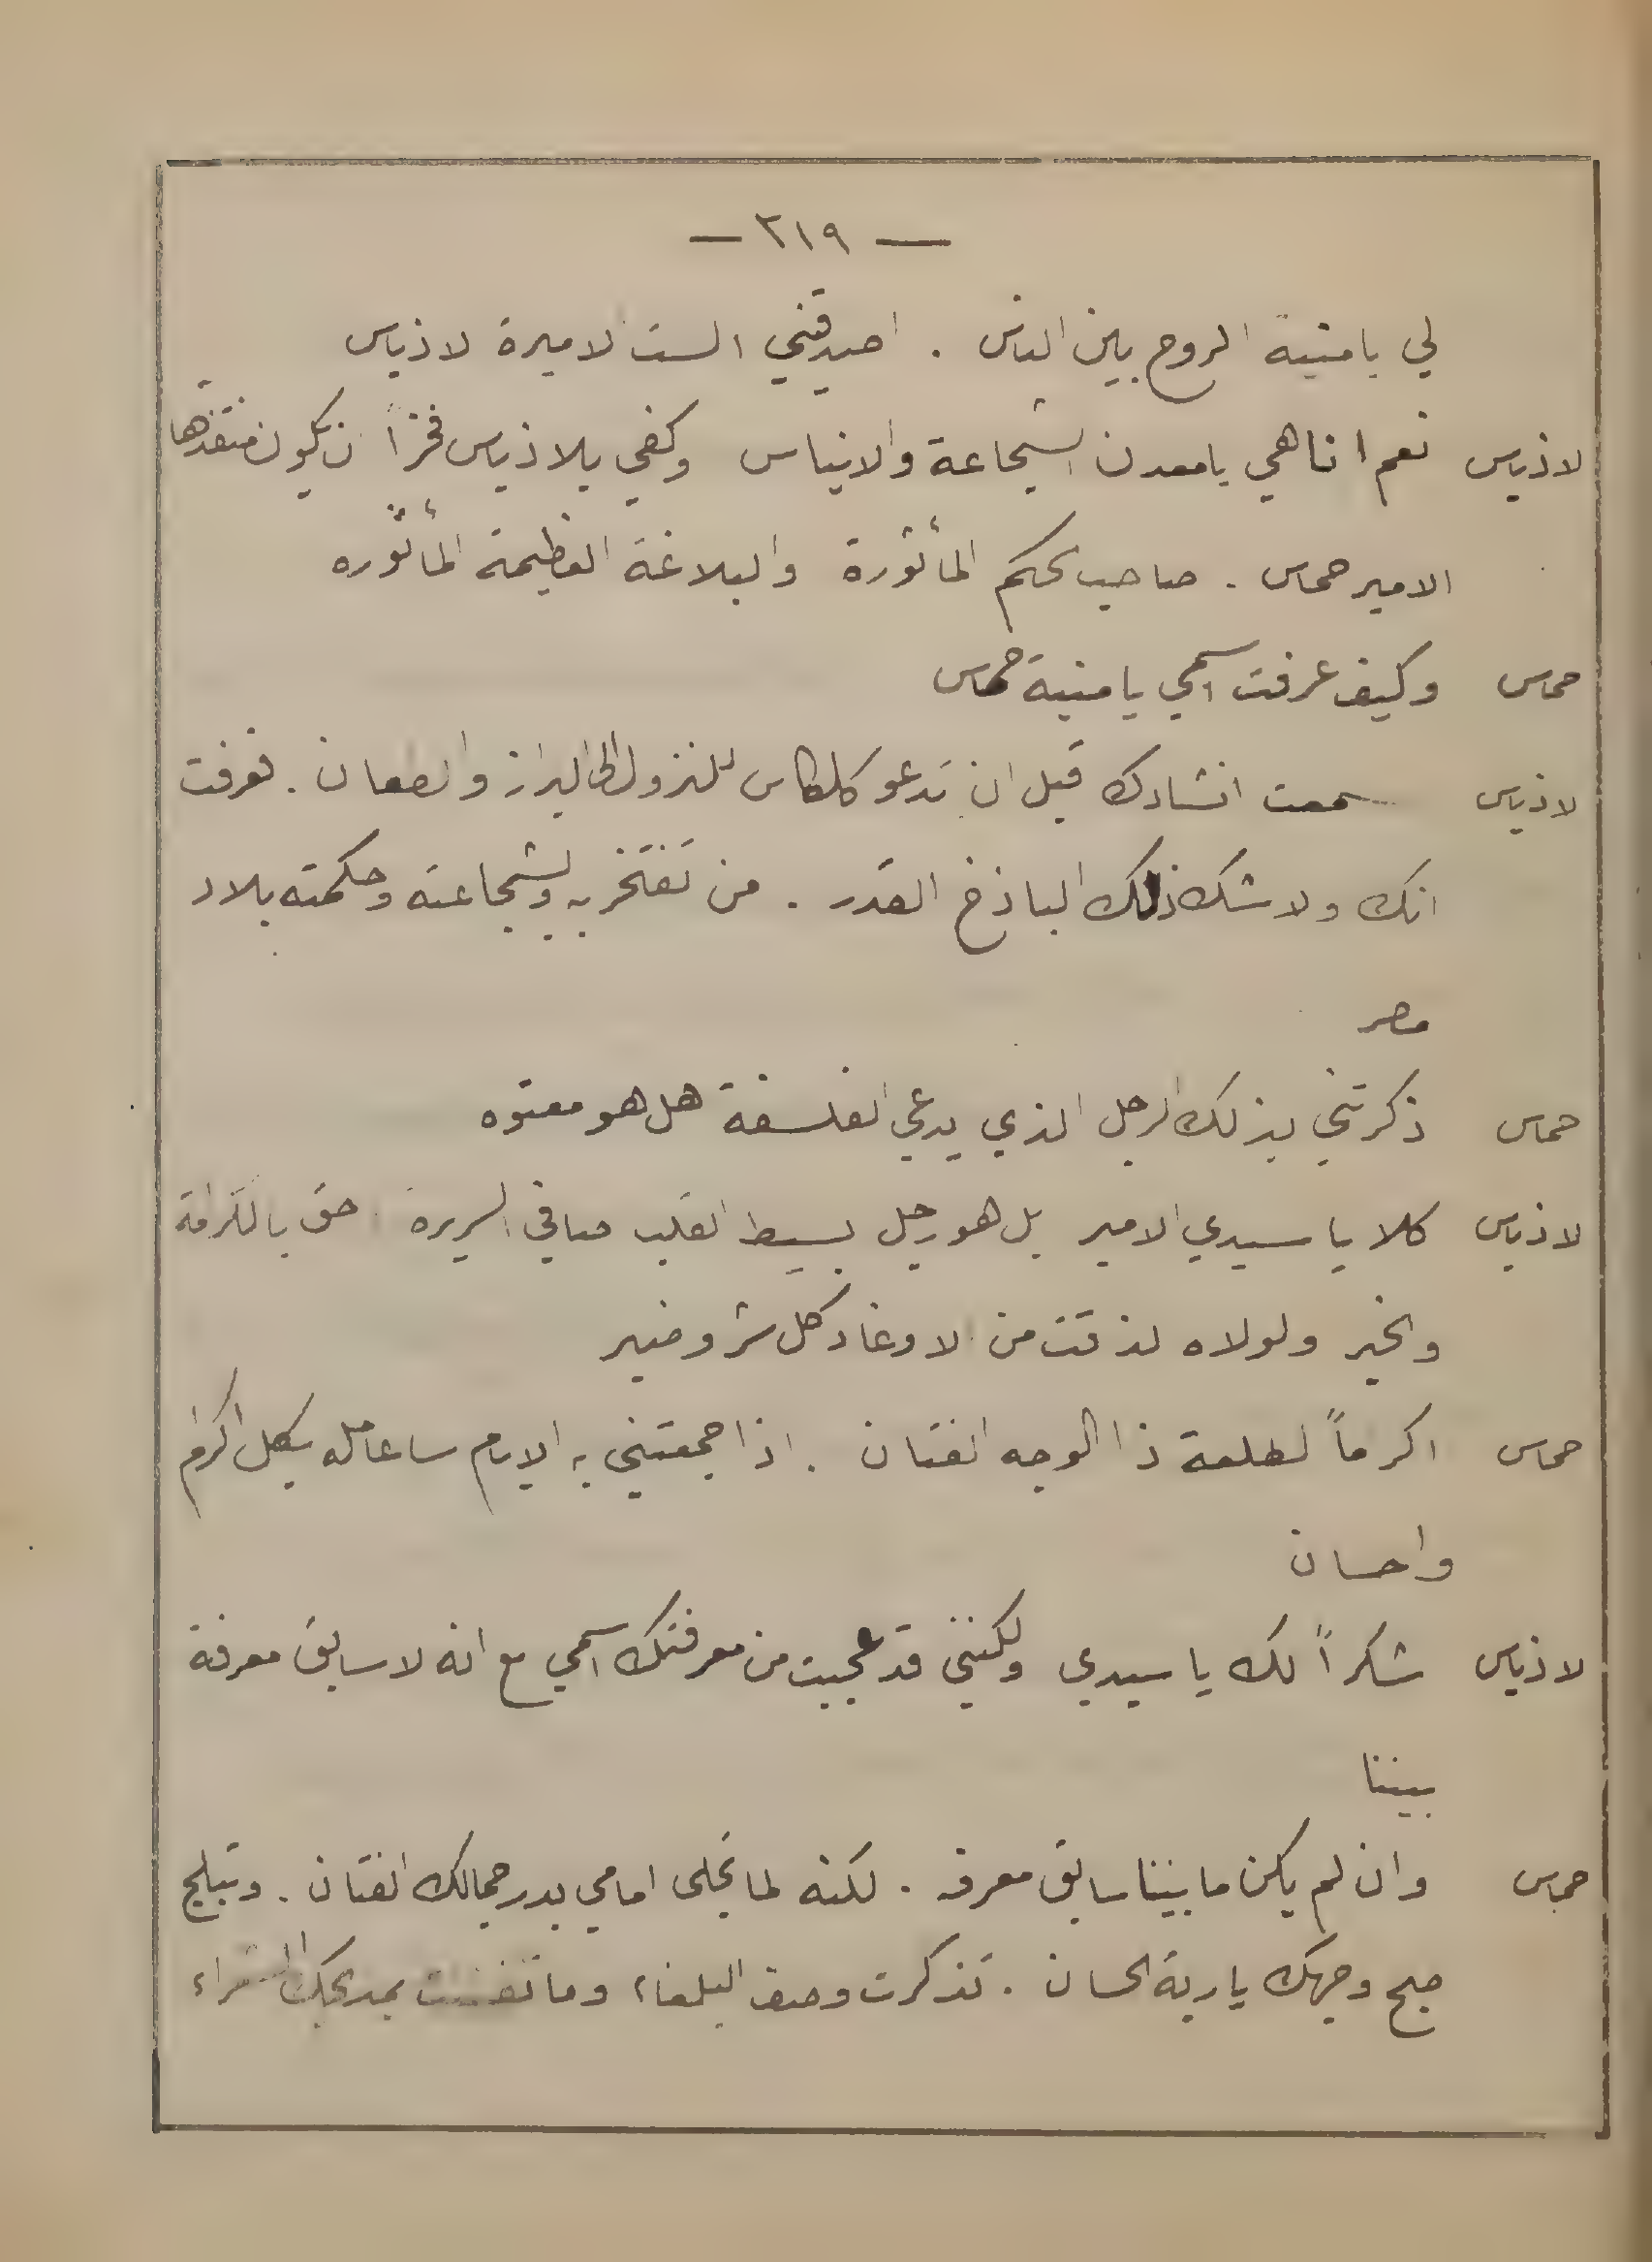 — ٣١٩ —
لي يا منية الروح بين الناس . اصدقني الست الاميرة لاذياس
لاذياس نعم انا هي يا معدن الشجاعة والايناس وكفى بلاذياس فخراً ان يكون منقذها
الامير حماس . صاحب الحكم المأثورة والبلاغة العظيمة المأثوره
حماس وكيف عرفت اسمي يا منية حماس
لاذياس سمعت انشادك قبل ان تدعو كلكاس للنزول الى البراز والطعان . فعرفت
انك ولا شك ذلك الباذخ القدر . من تفتخر به وبشجاعته وحكمته بلاد
مصر
حماس ذكرتني بذلك الرجل الذي يدعي الفلسفة هل هو معتوه
لاذياس كلا يا سيدي الامير بل هو رجل بسيط القلب صافي السريرة حق بالكرامة
والخير ولولاه لذقت من الاوغاد كل شر وضير
حماس اكرماً لطلعة ذا الوجه الفتان . اذا جمعتني به الايام ساعامله بكل اكرام
واحسان
لاذياس شكراً لك يا سيدي ولكنني قد عجبت من معرفتك اسمي مع انه لا سابق معرفة
بيننا
حماس وان لم يكن ما بيننا سابق معرفه . لكنه لما تجلى امامي بدر جمالك الفتان . وتبلج
صبح وجهك يا ربة الحسان . تذكرت وصف البلغاء وما تغنت بمديحك الشعراء